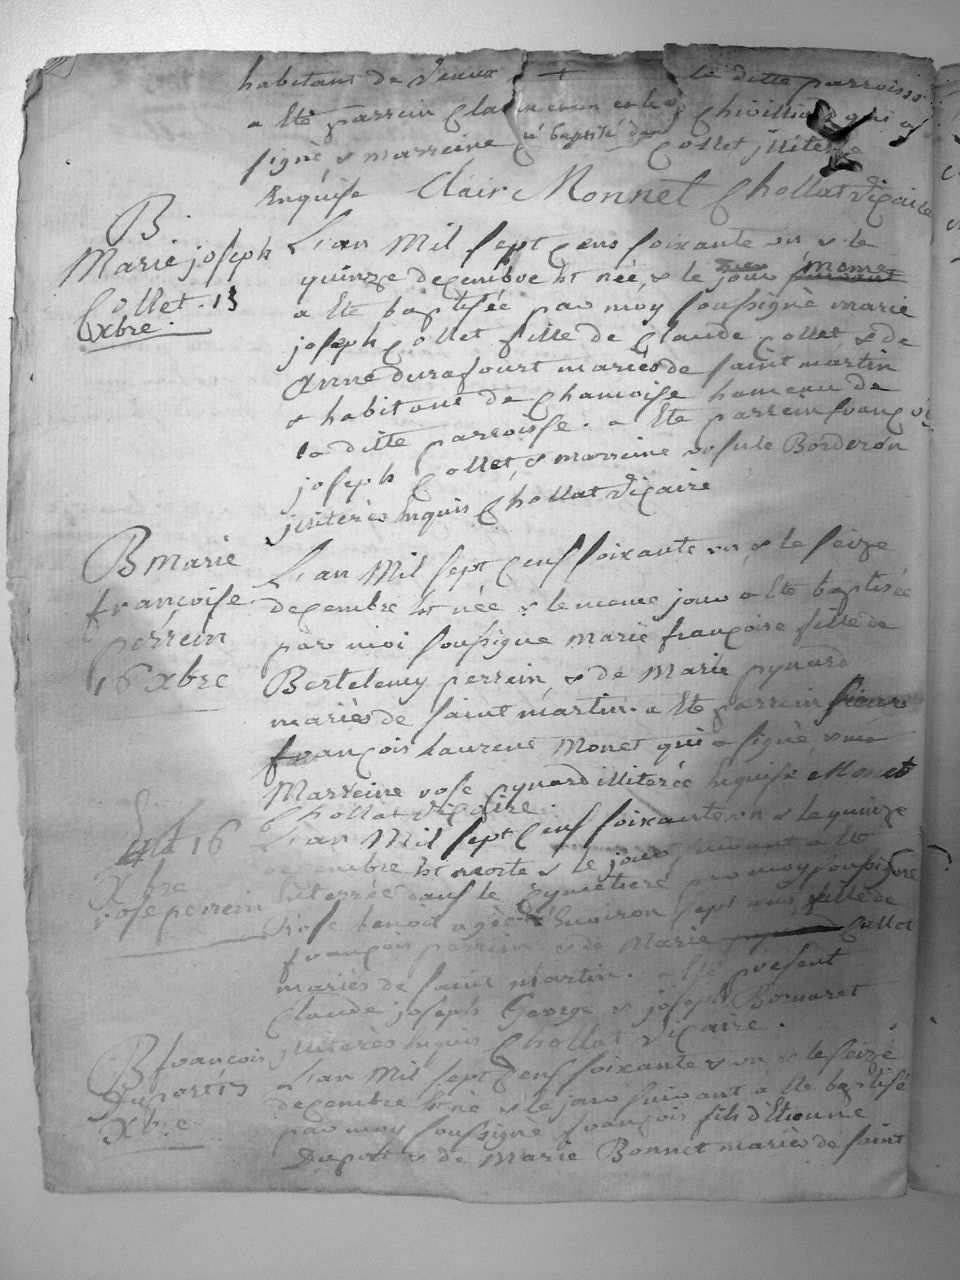 habitans de Veaux + la ditte parroisse
a Ete parrein Cla Chivilliard qui a
signé & marreine été baptisé Collet jlliterée
Enquise Clair Monnet Chollat Vicaire
B
Marie joseph
Collet. 15
Xbre.
L'an Mil sept Cens soixante un & le
quinze decembre Est née, & le jour meme
a Ete baptisée par moy soussigné marie
joseph Collet fille de Claude Collet & de
Anne durafourt mariés de saint martin
& habitans de Chamoise hameau de
la ditte parroisse. a Ete parrein françois
joseph Collet, & marreine ursule Borderon
jlliterés Enquis Chollat Vicaire
B Marie
françoise
perrein
16 Xbre
L'an Mil sept Cens soixante un & le seize
decembre Est née & le meme jour a Ete baptisée
par moi soussigné Marie françoise fille de
Bertelemy perrein, & de Marie pynard
mariés de saint martin. a Ete parrein
françois Laurens Monet qui a signé, &
Marreine rose pynard illiterée Enquise Monet
Chollat Vicaire.
16
Xbre
rose perrein
L'an Mil sept Cens soixante un & le quinze
decembre Est morte & le jour suivant a Ete
Enterrée dans le Cymetiere par moy soussigné
Rose benoit agée d'Environ sept ans fille de
françois perrein & de Marie Collet
mariés de saint martin. a Ete present
Claude joseph George & joseph Bomaret
jlliterés Enquis Chollat Vicaire.
B françois
Duport 17
Xbre
L'an Mil sept Cens soixante & un & le seize
decembre Est né & le jour suivant a Ete baptisé
par moy soussigné françois fils d'Etienne
Duport & de Marie Bonnet mariés de saint